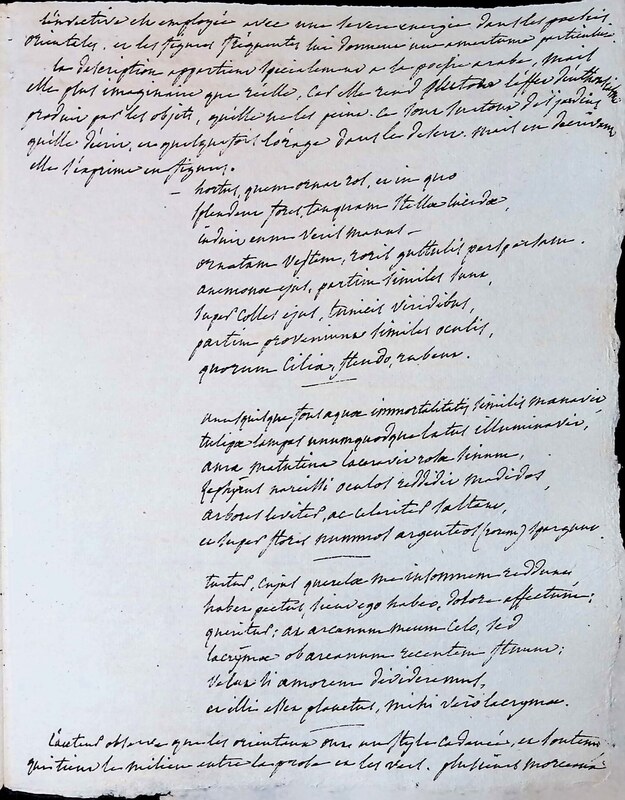 l'invective est employée avec une severe energie dans les poesies
orientales. et les figures fréquentes lui donnent une amertume particuliere
la description appartient specialement a la poesie arabe, mais
elle plus imaginaire que réelle, Car elle rend plutot l'effet
produit par les objets, qu'elle ne les peint. Ce sont surtout des jardins
qu'elle décrit, et quelquefois l'orage dans le desert. mais en decrivant
elle s'exprime en figures.
– hortus, quem ornat ros, et in quo
splendent flores, tanquam stellæ lucidæ,
induit eum veris manus –
ornatam vestem, roris guttulis perspersam.
anemonæ ejus, partim similes sunt,
super colles ejus, tunicis viridibus,
partim proveniunt similes oculis,
quorum Cilia, flendo, rubent.
unusquisque fons aquæ immortalitatis similis manavit
tulipæ lampas unumquodque latus illuminavit,
aura matutina laceravit rosæ sinum,
Zephyrus narcissi oculos reddidit madidos,
arbores leviter, ac celeriter saltant,
et super flores nummos argenteos (rorem) spargunt.
turtur, cujus querelæ me insomnem reddunt
habet pectus, sicut ego habeo, dolore affectum;
queritur; at arcanum meum celo, sed
lacrymæ ob arcanum recentem fluunt;
velut si amorem divideremus,
et illi esset planctus, mihi verò lacrymæ.
L'auteur observe que les orientaux ont un style cadencé, et soutenu
qui tient le milieu entre la prose et les vers. plusieurs morceaux